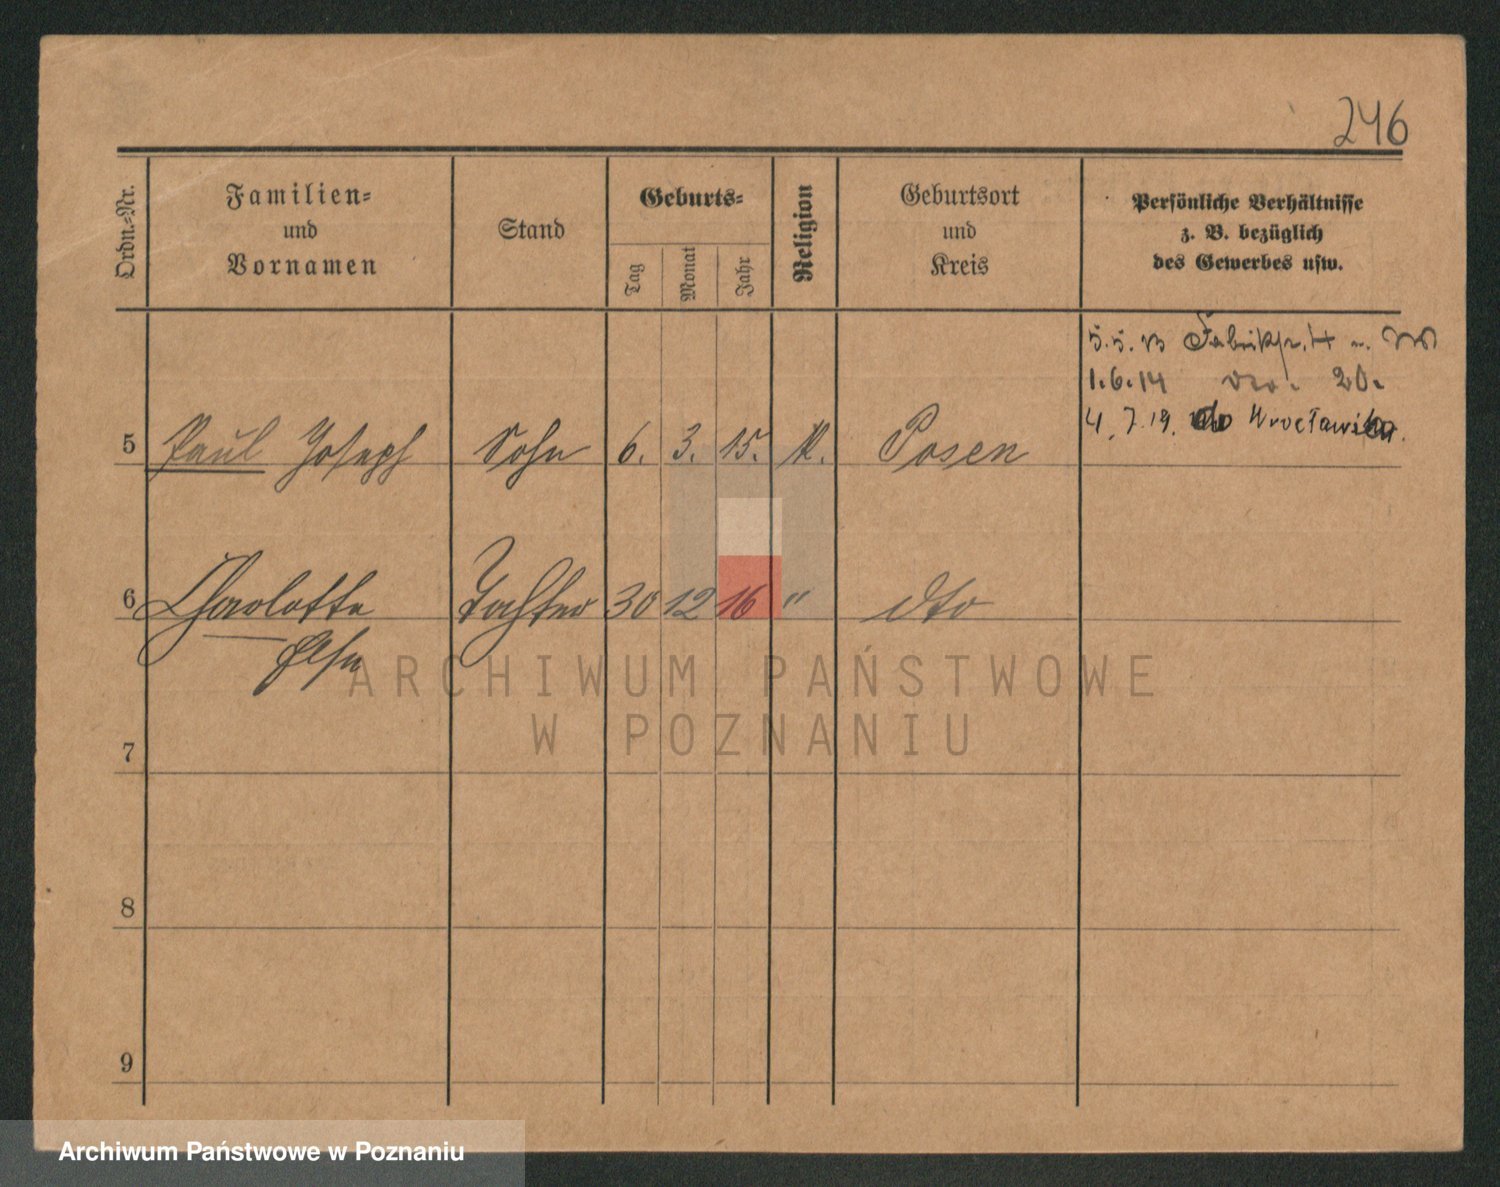 246
Ordn.-Nr.
Familien-
und
Vornamen
Stand
Geburts-
Tag
Monat
Jahr
Religion
Geburtsort
und
Kreis
Persönliche Verhältnisse
z. B. bezüglich
des Gewerbes usw.
5.5.13 Fabrikstr.
1.6.14 dto. 20.
4.7.19. do Wrocławska.
5 Paul Joseph Sohn 6. 3. 15. K. Posen
6 Charlotte Tochter 30 12 16 " dto
Else
7
8
9
ARCHIWUM PAŃSTWOWE
W POZNANIU
Archiwum Państwowe w Poznaniu